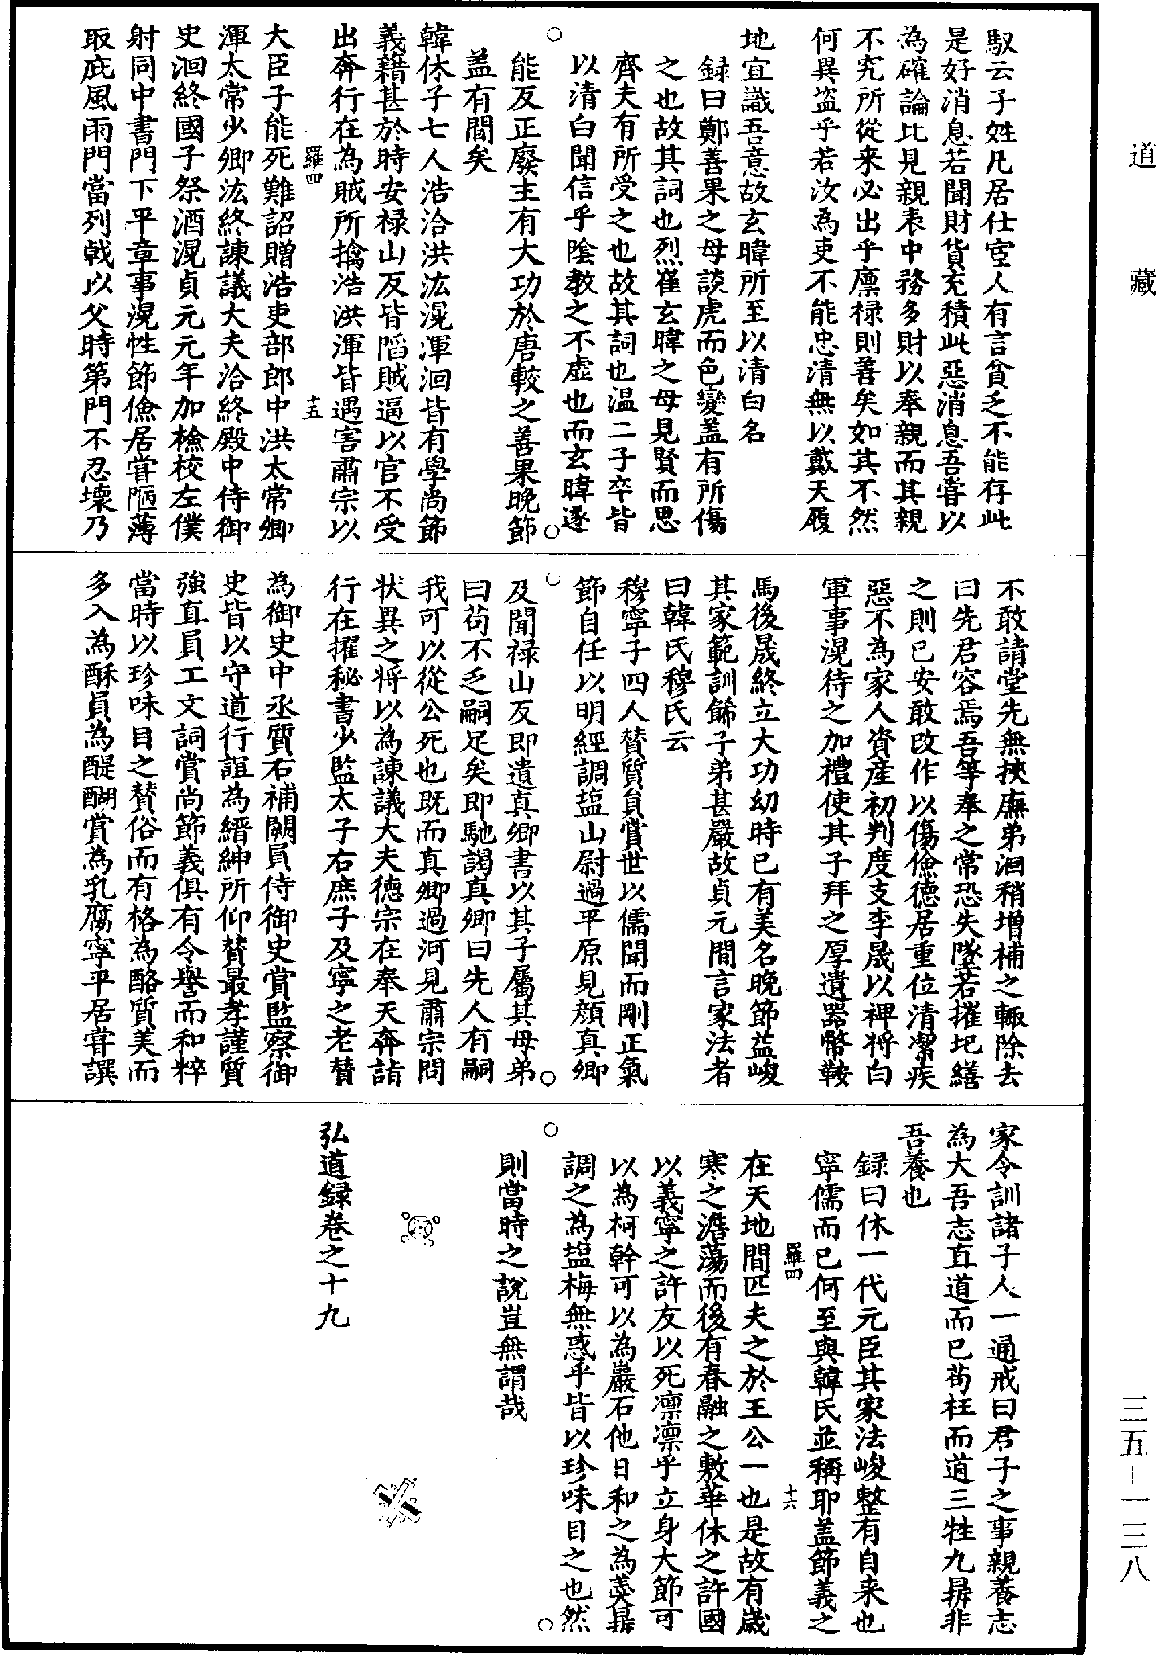 道藏
馭云子姓凡居仕宦人有言貧乏不能存此
是好消息若聞財貨充積此惡消息吾嘗以
為確論比見親表中務多財以奉親而其親
不究所從來必出乎廩禄則善矣如其不然
何異盗乎若汝為吏不能忠清無以戴天履
地宜識吾意故玄暐所至以清白名
録曰鄭善果之母談虎而色變盖有所傷
之也故其詞也烈崔玄暐之母見賢而思
齊夫有所受之也故其詞也温二子卒皆
以清白聞信乎陰教之不虚也而玄暐遂
能反正廢主有大功於唐較之善果晚節
盖有間矣
韓休子七人浩洽洪汯滉渾洄皆有學尚節
義藉甚於時安禄山反皆陷賊逼以官不受
出奔行在為賊所擒浩洪渾皆遇害肅宗以
羅四
十五
大臣子能死難詔贈浩吏部郎中洪太常卿
渾太常少卿汯終諫議大夫洽終殿中侍御
史洄終國子祭酒滉貞元元年加檢校左僕
射同中書門下平章事滉性節儉居甞陋薄
取庇風雨門當列戟以父時第門不忍壞乃
不敢請堂先無挾廡弟洄稍增補之輙除去
曰先君容焉吾等奉之常恐失墜若摧圮繕
之則已安敢改作以傷儉德居重位清潔疾
惡不為家人資産初判度支李晟以裨將白
軍事滉待之加禮使其子拜之厚遺器幣鞍
馬後晟終立大功幼時已有美名晚節益峻
其家範訓飾子弟甚嚴故貞元間言家法者
曰韓氏穆氏云
穆寧子四人賛質負賞世以儒聞而剛正氣
節自任以明經調塩山尉過平原見顔真卿
及聞禄山反即遺真卿書以其子屬其母弟
曰苟不乏嗣足矣即馳謁真卿曰先人有嗣
我可以從公死也既而真卿過河見肅宗問
状異之将以為諫議大夫德宗在奉天奔詣
行在擢秘書少監太子右庶子及寧之老賛
為御史中丞質右補闕員侍御史賞監察御
史皆以守道行誼為縉紳所仰賛最孝謹質
強直員工文詞賞尚節義俱有令譽而和粹
當時以珍味目之賛俗而有格為酪質美而
多入為酥員為醍醐賞為乳腐寧平居甞譔
家令訓諸子人一通戒曰君子之事親養志
為大吾志直道而已苟枉而道三牲九鼎非
吾養也
録曰休一代元臣其家法峻整有自来也
寧儒而已何至與韓氏並稱耶盖節義之
羅四
十六
在天地間匹夫之於王公一也是故有歲
寒之澹蕩而後有春融之敷華休之許國
以義寧之許友以死凛凛乎立身大節可
以為柯幹可以為巖石他日和之為羮鼎
調之為塩梅無惑乎皆以珍味目之也然
則當時之說豈無謂哉
弘道録卷之十九
三五－一三八